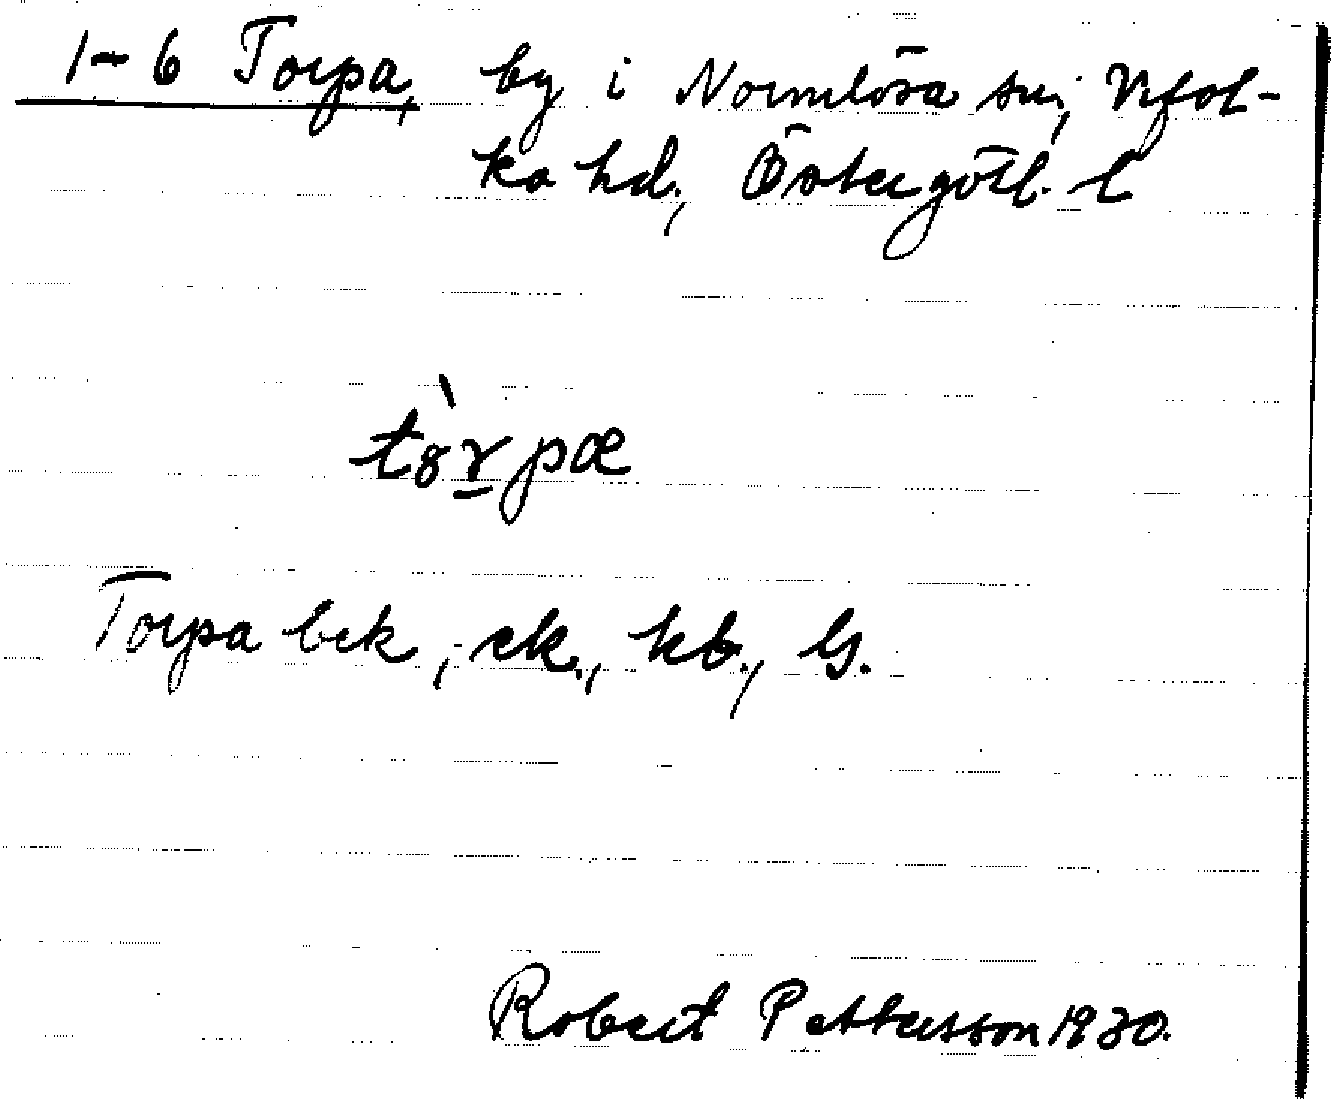 1-6 Torpa, by i Normlösa sn, Vifol-
ka hd, Östergötl. l
tò̀rpæ
Torpa bek, ek., kb., G.
Robert Pettersson 1930.